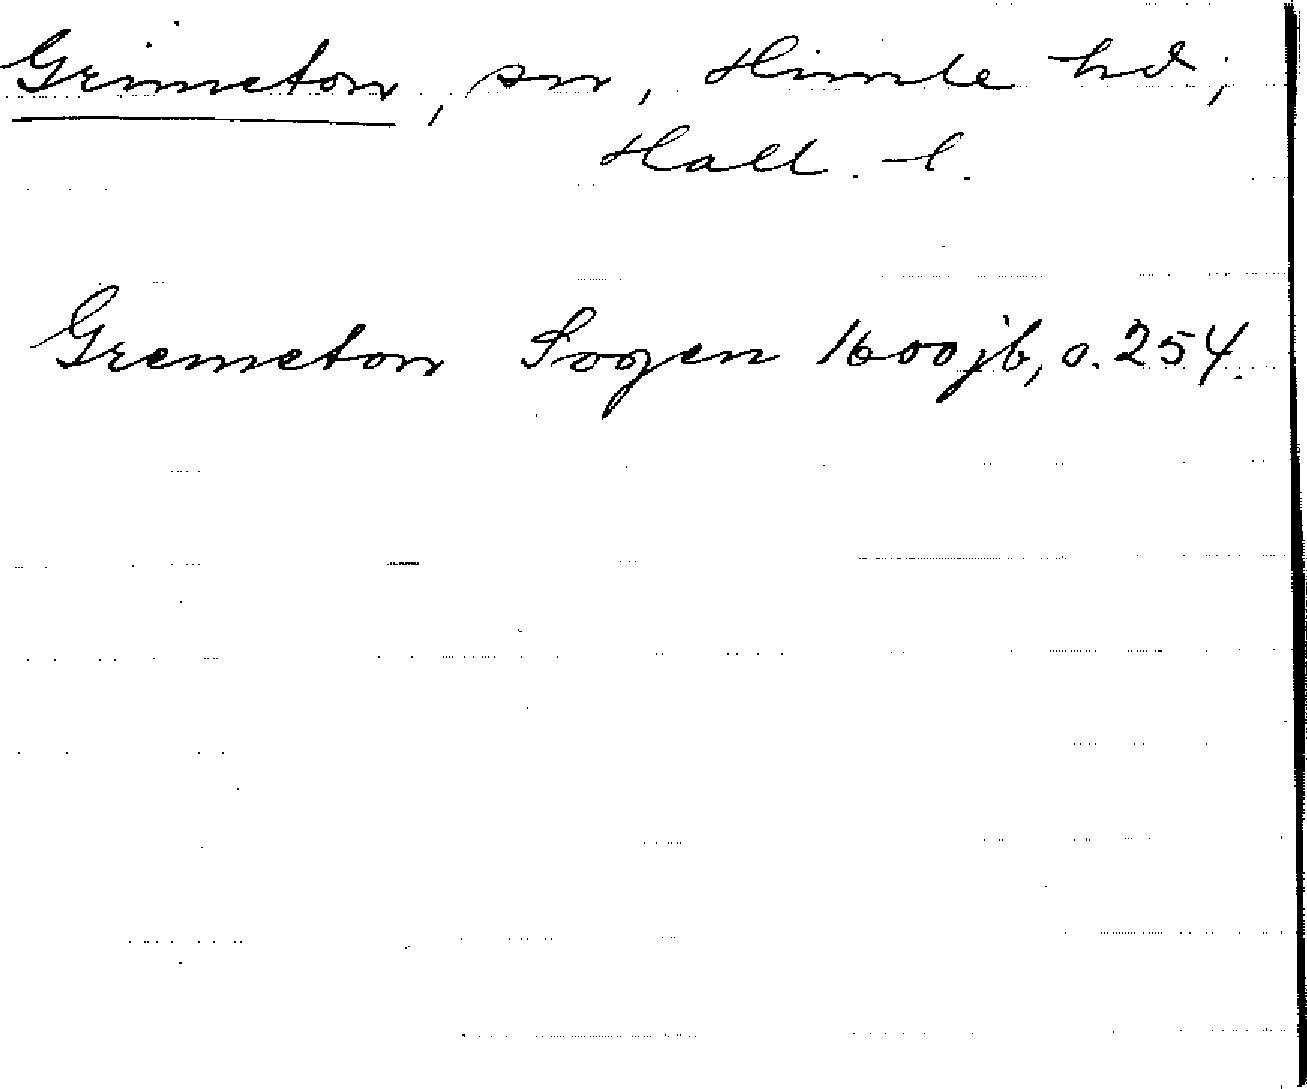 Grimeton, sn, Himle hd,
Hall. l.
Gremeton Sogen 1600 jb, s. 254.